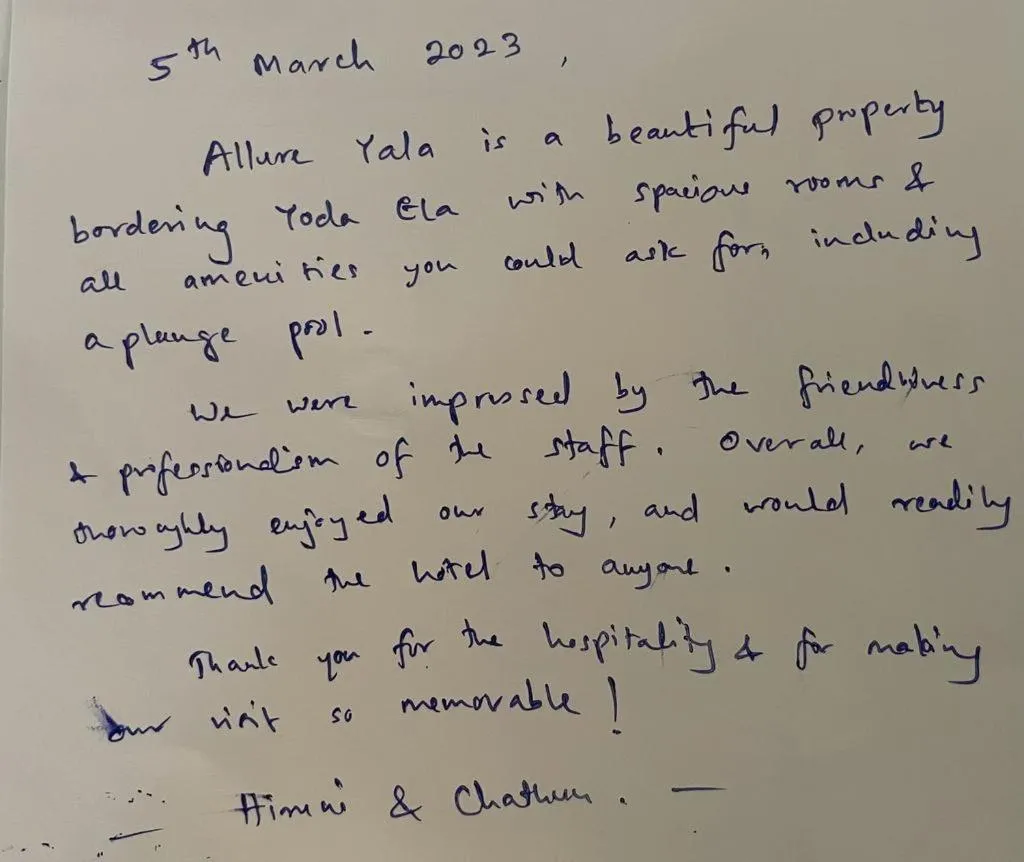 5th March 2023,
Allure Yala is a beautiful property
bordering Yoda Ela with spacious rooms &
all amenities you could ask for, including
a plunge pool.
We were impressed by the friendliness
& professionalism of the staff. Overall, we
thoroughly enjoyed our stay, and would readily
recommend the hotel to anyone.
Thank you for the hospitality & for making
our visit so memorable!
& Chathuri. —